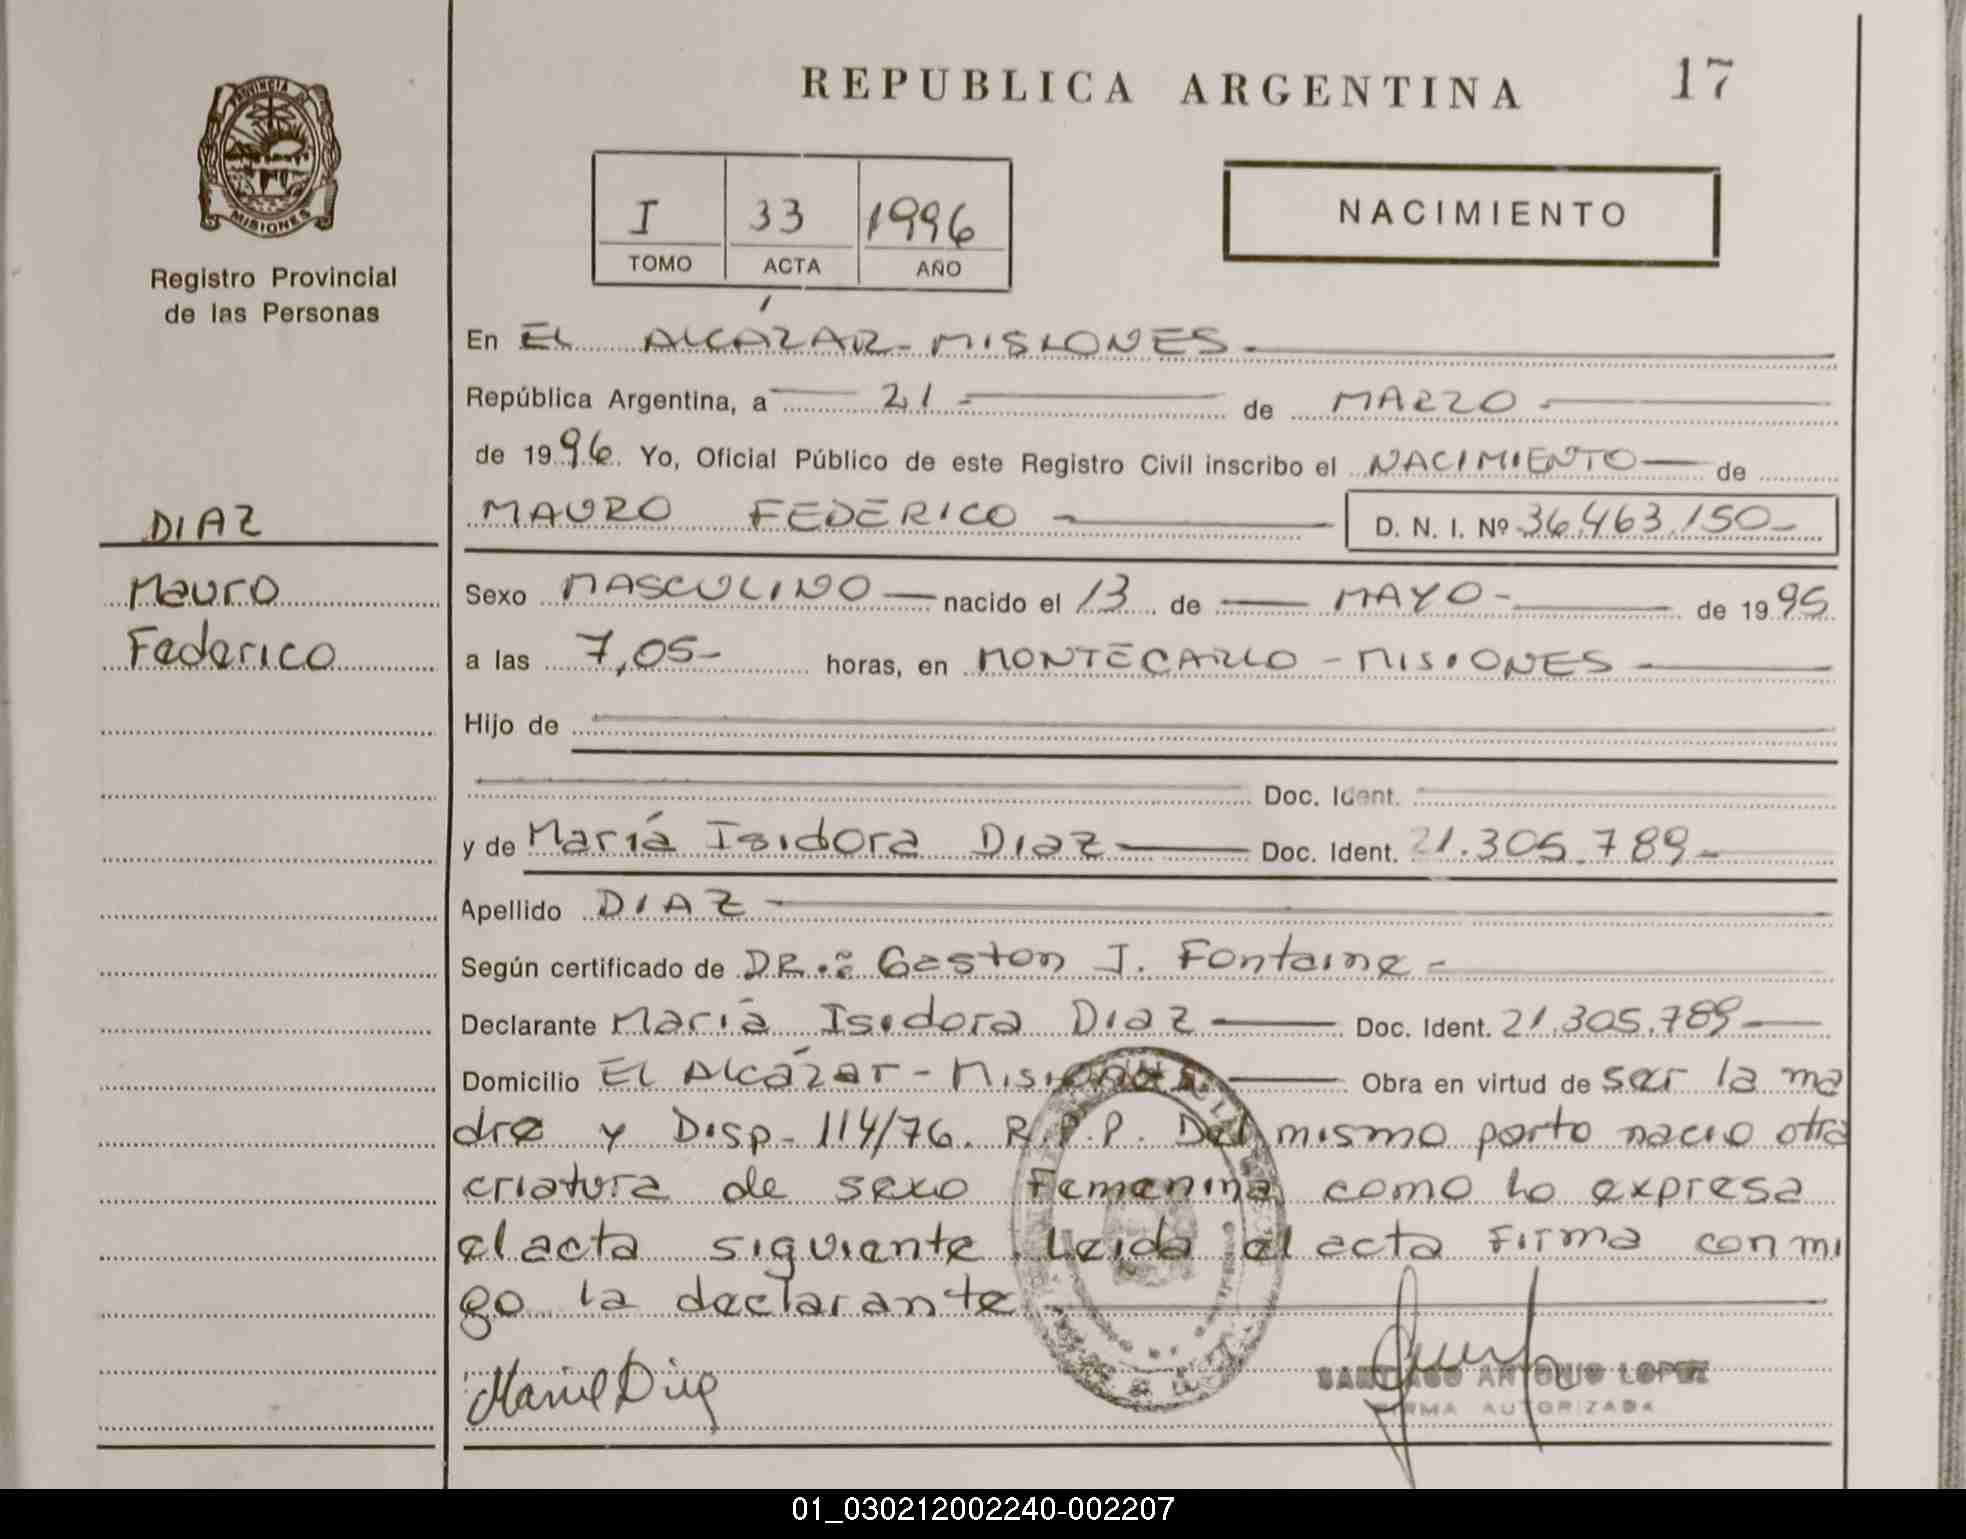 REPUBLICA ARGENTINA
17
PROVINCIA DE
MISIONES
Registro Provincial
de las Personas
I 33 1996
TOMO ACTA AÑO
NACIMIENTO
En EL ALCÁZAR - MISIONES -
República Argentina, a 21 - de MARZO -
de 1996. Yo, Oficial Público de este Registro Civil inscribo el NACIMIENTO de
DIAZ
MAURO FEDERICO - D. N. I. Nº 36.463.150-
Mauro
Federico
Sexo MASCULINO nacido el 13 de MAYO - de 1995
a las 7,05- horas, en MONTECARLO - MISIONES
Hijo de
Doc. Ident.
y de María Isidora Diaz Doc. Ident. 21.305.789-
Apellido DIAZ -
Según certificado de DR.: Gaston J. Fontaine -
Declarante María Isidora Diaz Doc. Ident. 21.305.789
Domicilio El Alcázar - Misiones. Obra en virtud de ser la ma
dre y Disp- 114/76. R.P.P. Del mismo parto nacio otra
criatura de sexo Femenina como lo expresa
el acta siguiente. Leida el acta Firma conmi
go la declarante.
SANTIAGO ANTONIO LOPEZ
FIRMA AUTORIZADA
01_030212002240-002207